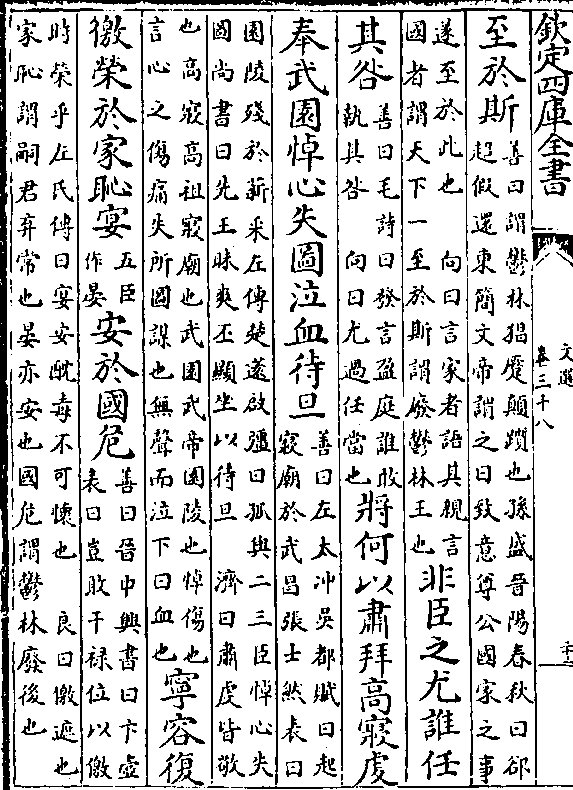 欽定四庫全書
文選
卷三十八
至於斯
善曰謂鬱林猖蹙顛躓也孫盛晉陽春秋曰郤
超假還東簡文帝謂之曰致意尊公國家之事
遂至於此也 向曰言家者語其親言
國者謂天下一 至於斯謂廢鬱林王也
非臣之尤誰任
其咎
善曰毛詩曰發言盈庭誰敢
執其咎 向曰尤過任當也
將何以肅拜高寢虔
奉武園悼心失圖泣血待旦
善曰左太冲吳都賦曰起
寢廟於武昌張士然表曰
園陵殘於薪采左傳楚薳啟彊曰孤與二三臣悼心失
圖尚書曰先王昧爽丕顯坐以待旦 濟曰肅虔皆敬
也高寢高祖寢廟也武園武帝園陵也悼傷也
言心之傷痛失所圖謀也無聲而泣下曰血也
寧容復
徼榮於家恥宴
五臣
作晏
安於國危
善曰晉中興書曰卞壺
表曰豈敢干祿位以徼
時榮乎左氏傳曰宴安酖毒不可懷也 良曰徼遮也
家恥謂嗣君弃常也晏亦安也國危謂鬱林廢後也